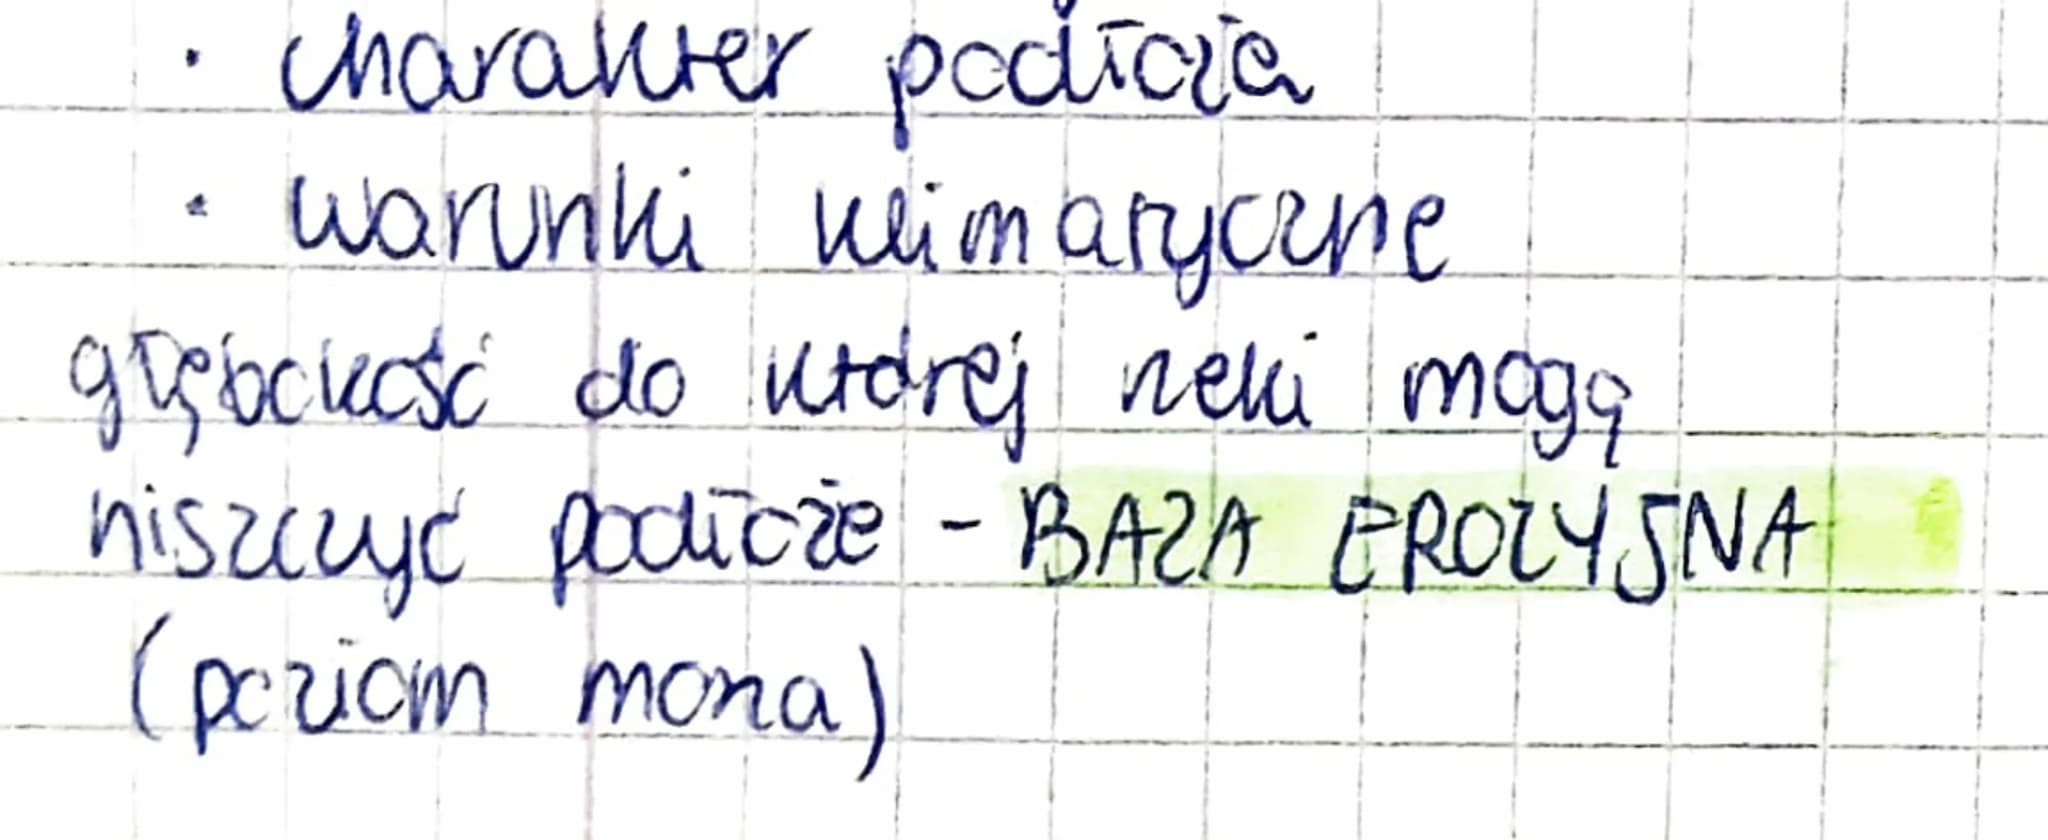 · charakter podłoża
· warunki klimatyczne
głębokość do której rzeki mogą
niszczyć podłoże - BAZA EROZYJNA
(poziom morza)